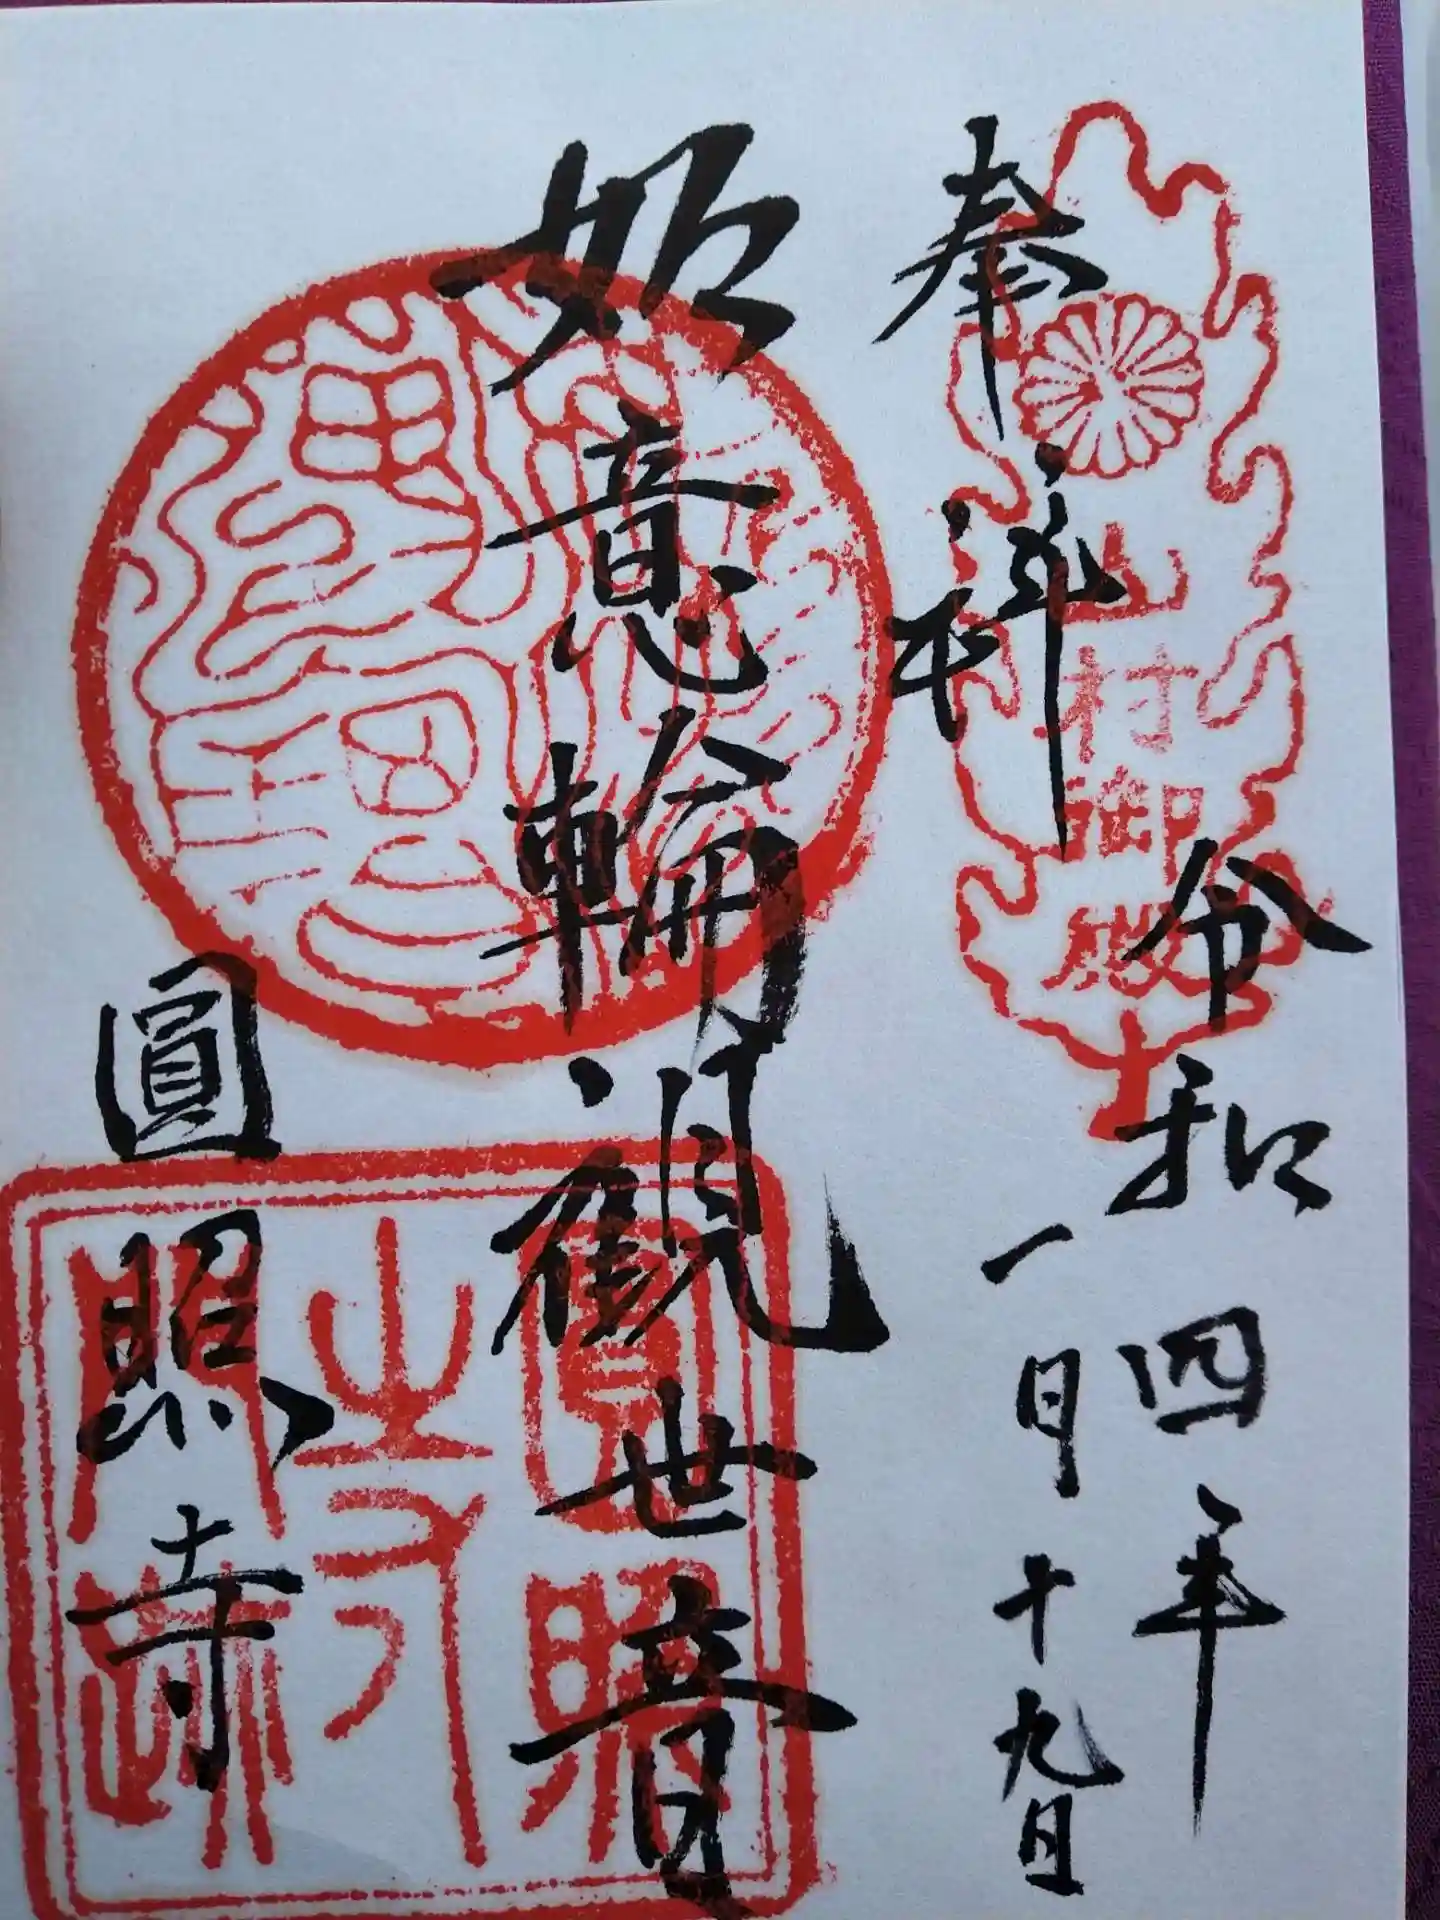 奉拝
山村御殿
令和四年
一月十九日
如意輪観世音
圓照寺